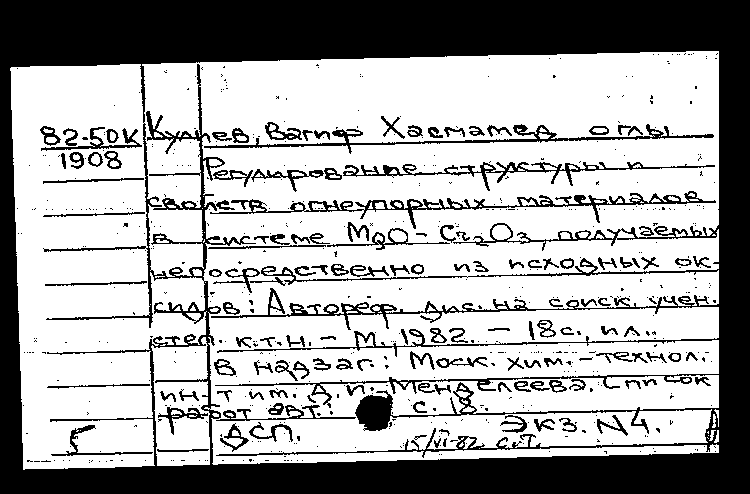 82-50К Кулиев, Вагиф Хасмамед оглы
1908 Регулирование структуры и
свойств огнеупорных материалов
в системе MgO - Cr2O3, получаемых
непосредственно из исходных ок-
сидов: Автореф. дис. на соиск. учен.
степ. к.т.н. - М., 1982. - 18с., ил..
В надзаг.: Моск. хим.-технол.
ин-т им. Д. И. Менделеева. Список
работ авт.: с. 18.
Экз. N4.
5 ДСП. 15/VI-82 С.Т.